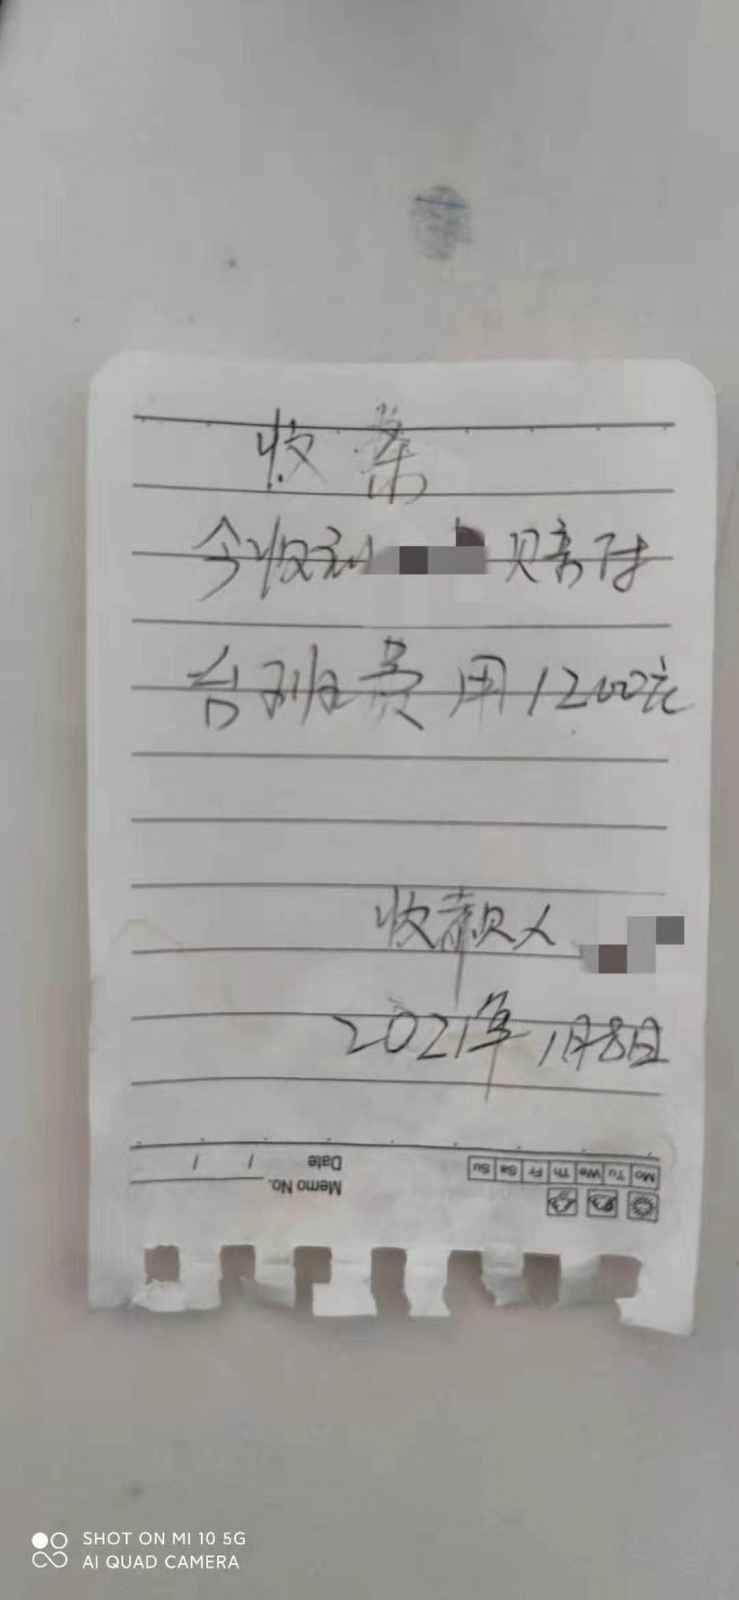 收条
今收到 赔付
台班费用1200元
收款人
2021年1月8日
Date / /
Memo No.
Mo Tu We Th Fr Sa Su
SHOT ON MI 10 5G
AI QUAD CAMERA